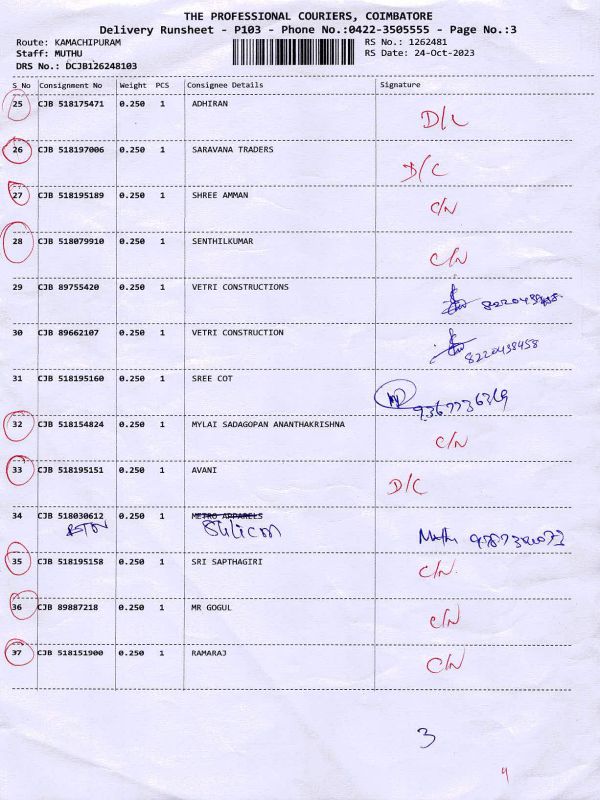 THE PROFESSIONAL COURIERS, COIMBATORE
Delivery Runsheet - P103 - Phone No.:0422-3505555 - Page No.:3
Route: KAMACHIPURAM RS No.: 1262481
Staff: MUTHU RS Date: 24-Oct-2023
DRS No.: DCJB126248103
S No Consignment No Weight PCS Consignee Details Signature
25 CJB 518175471 0.250 1 ADHIRAN D/L
26 CJB 518197006 0.250 1 SARAVANA TRADERS D/C
27 CJB 518195189 0.250 1 SHREE AMMAN C/N
28 CJB 518079910 0.250 1 SENTHILKUMAR C/N
29 CJB 89755420 0.250 1 VETRI CONSTRUCTIONS
30 CJB 89662107 0.250 1 VETRI CONSTRUCTION 8220438458
31 CJB 518195160 0.250 1 SREE COT 9367736369
32 CJB 518154824 0.250 1 MYLAI SADAGOPAN ANANTHAKRISHNA C/N
33 CJB 518195151 0.250 1 AVANI D/C
34 CJB 518030612 0.250 1 METRO APPARELS
Muthu
35 CJB 518195158 0.250 1 SRI SAPTHAGIRI C/N
36 CJB 89887218 0.250 1 MR GOGUL C/N
37 CJB 518151900 0.250 1 RAMARAJ C/N
3